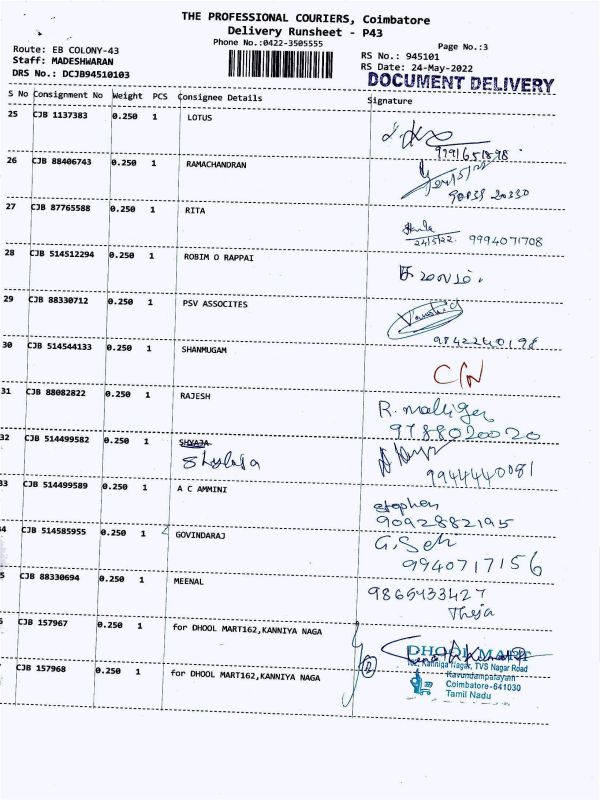 THE PROFESSIONAL COURIERS, Coimbatore
Delivery Runsheet - P43
Phone No.:0422-3505555
Page No.:3
Route: EB COLONY-43
RS No.: 945101
Staff: MADESHWARAN
RS Date: 24-May-2022
DRS No.: DCJB94510103
DOCUMENT DELIVERY
S No Consignment No Weight PCS Consignee Details Signature
25 CJB 1137383 0.250 1 LOTUS
26 CJB 88406743 0.250 1 RAMACHANDRAN
27 CJB 87765588 0.250 1 RITA
24/5/22. 9994071708
28 CJB 514512294 0.250 1 ROBIM O RAPPAI
29 CJB 88330712 0.250 1 PSV ASSOCITES
9842240198
30 CJB 514544133 0.250 1 SHANMUGAM
31 CJB 88082822 0.250 1 RAJESH
R. malliga
9788020020
32 CJB 514499582 0.250 1 SHYAJA
Shylaja
9944440081
33 CJB 514499589 0.250 1 A C AMMINI
stephen
9092882195
4 CJB 514585955 0.250 1 GOVINDARAJ
9940717156
5 CJB 88330694 0.250 1 MEENAL
9865933427
Theja
CJB 157967 0.250 1 for DHOOL MART162,KANNIYA NAGA
DHOOL MART
162, Kanniga Nagar, TVS Nagar Road
Kavundampalayam
Coimbatore-641030
Tamil Nadu
CJB 157968 0.250 1 for DHOOL MART162,KANNIYA NAGA